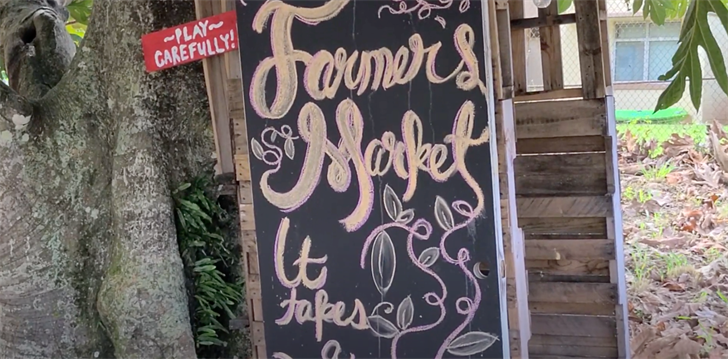 ~PLAY~
CAREFULLY!
Farmer's
Market
It
takes